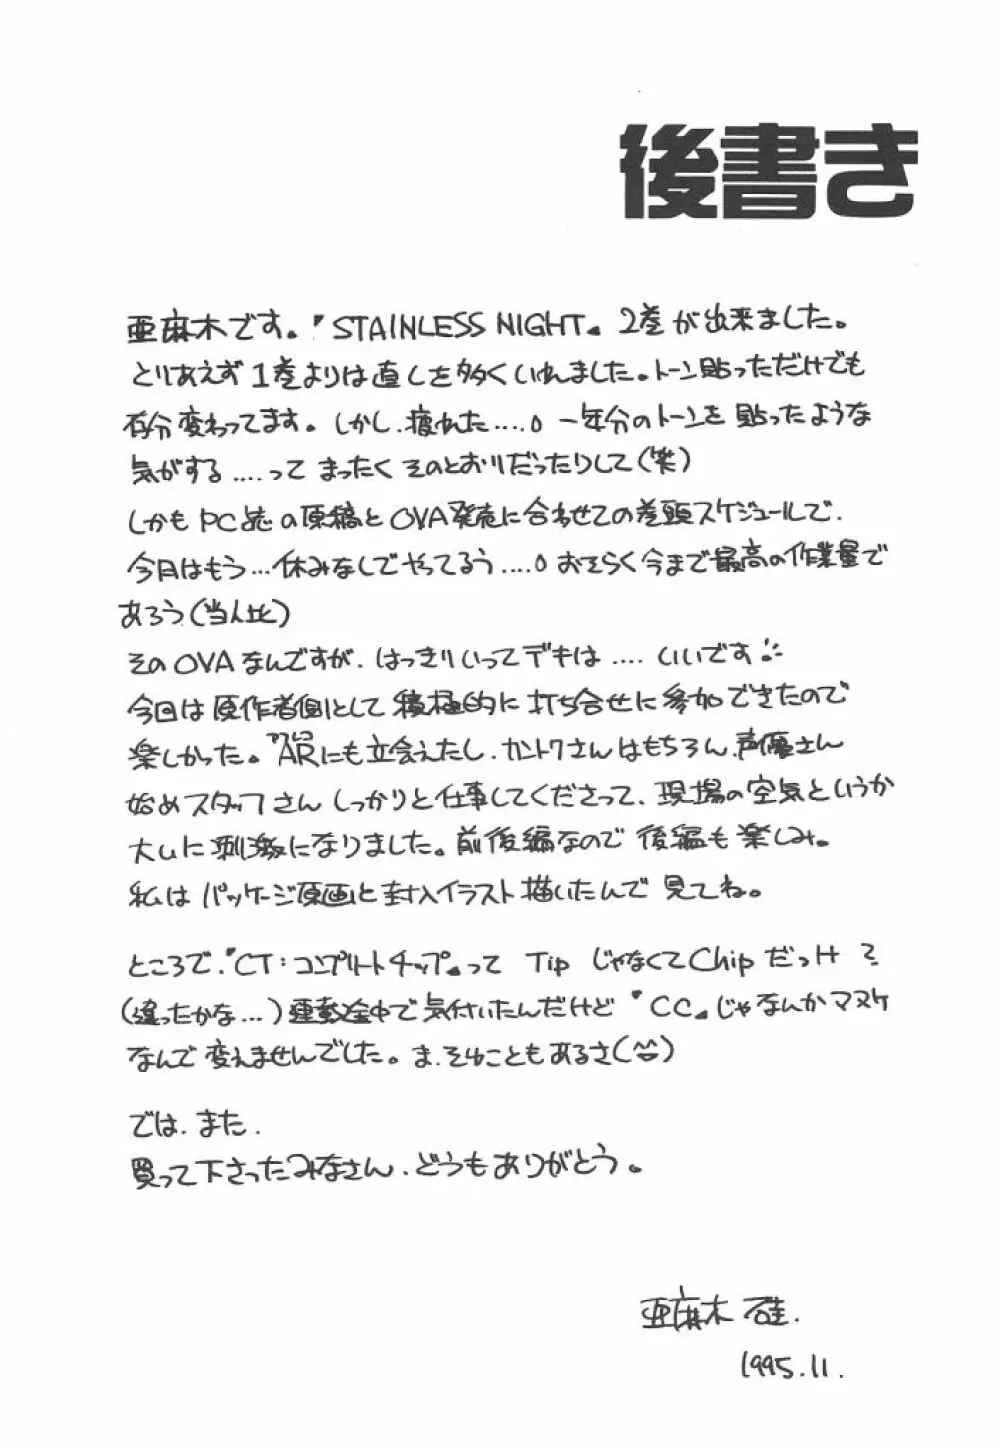 後書き
亜麻木です。『STAINLESS NIGHT』2巻が出来ました。
とりあえず1巻よりは直しを多くいれました。トーン貼っただけでも
存分変わってます。しかし、疲れた....。一年分のトーンを貼ったような
気がする....ってまったくそのとおりだったりして(笑)
しかもPC誌の原稿とOVA発売に合わせての巻頭スケジュールで、
今月はもう...休みなしでやってるう....。おそらく今まで最高の作業量で
あろう(当人比)
そのOVAなんですが、はっきりいってデキは....いいです!!
今回は原作者側として積極的に打ち合せに参加できたので
楽しかった。アフレコ
ARにも立会えたし、カントクさんはもちろん、声優さん
始めスタッフさんしっかりと仕事してくださって、現場の空気というか
大いに刺激になりました。前後編なので後編も楽しみ。
私はパッケージ原画と封入イラスト描いたんで見てね。
ところで、『CT:コンプリートチップ』ってTipじゃなくてChipだっけ?
(違ったかな...)連載途中で気付いたんだけど『CC』じゃなんかマヌケ
なんで変えませんでした。ま、そんなこともあるさ(^^)
では、また。
買って下さったみなさん、どうもありがとう。
亜麻木硅.
1995.11.